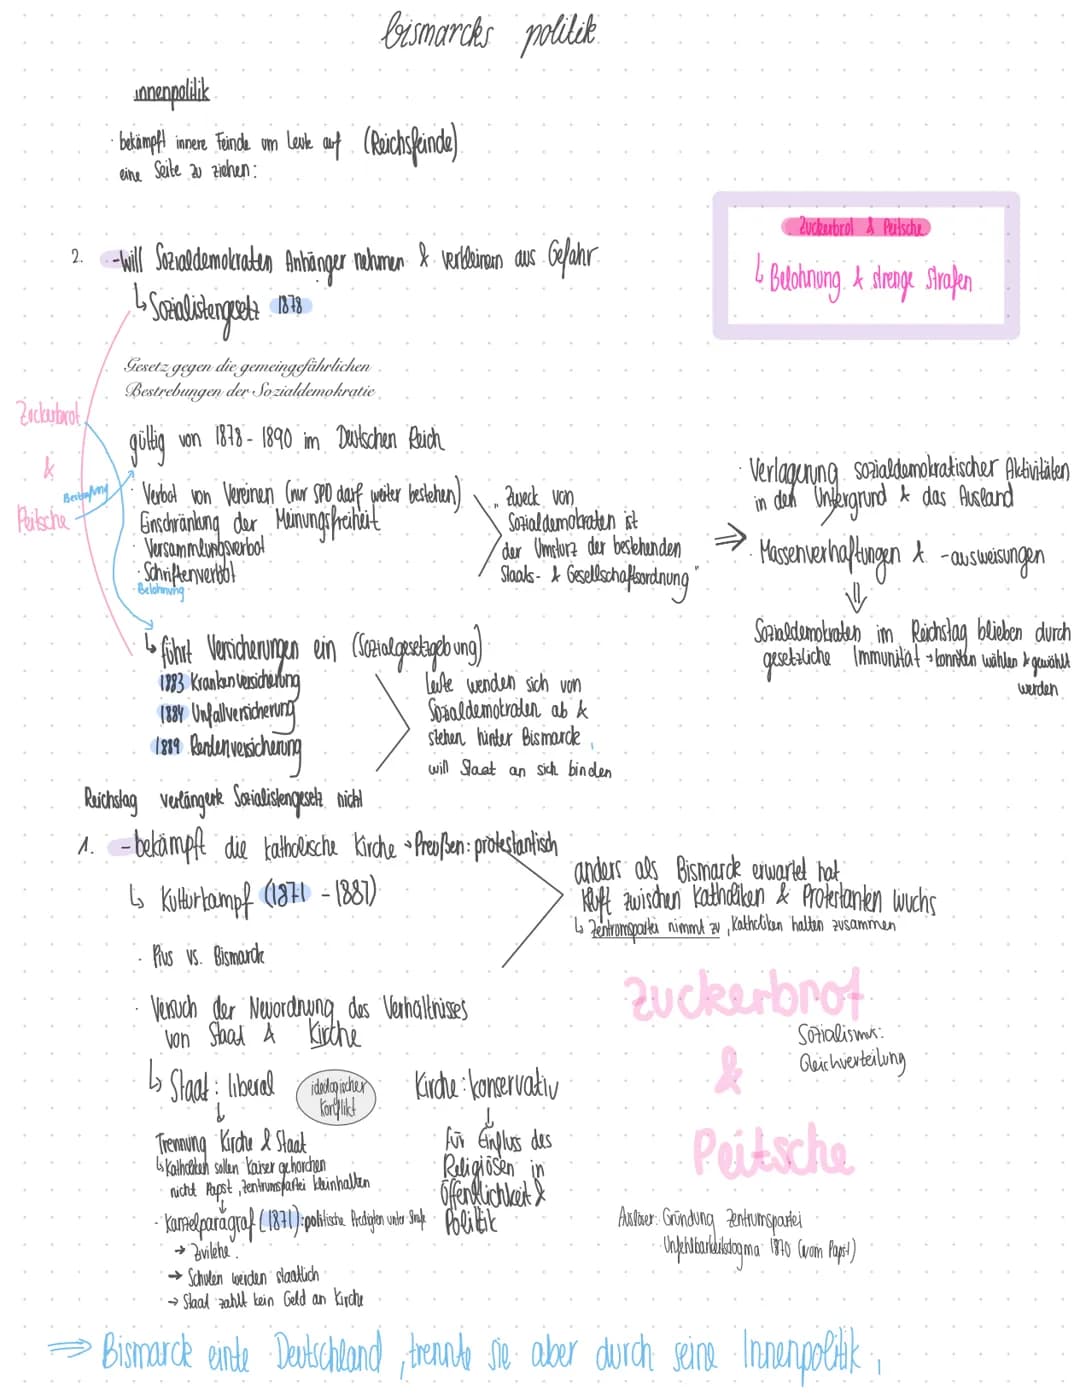 bismarcks politik
innenpolitik
· bekämpft innere Feinde um Leute auf (Reichsfeinde)
eine Seite zu ziehen:
Zuckerbrot & Peitsche
↳ Belohnung & strenge Strafen
2. - will Sozialdemokraten Anhänger nehmen & verkleinern aus Gefahr
↳ Sozialistengesetz 1878
Gesetz gegen die gemeingefährlichen
Bestrebungen der Sozialdemokratie
Zuckerbrot
&
Peitsche
Bestrafung
gültig von 1878 - 1890 im Deutschen Reich
· Verbot von Vereinen (nur SPD darf weiter bestehen)
Einschränkung der Meinungsfreiheit
· Versammlungsverbot
· Schriftenverbot
Belohnung
" Zweck von
Sozialdemokraten ist
der Umsturz der bestehenden
Staats- & Gesellschaftsordnung "
⇒
· Verlagerung sozialdemokratischer Aktivitäten
in den Untergrund & das Ausland
· Massenverhaftungen & -ausweisungen
⇓
Sozialdemokraten im Reichstag blieben durch
gesetzliche Immunität → konnten wählen & gewählt
werden
↳ führt Versicherungen ein (Sozialgesetzgebung)
1883 Krankenversicherung
1884 Unfallversicherung
1889 Rentenversicherung
Leute wenden sich von
Sozialdemokraten ab &
stehen hinter Bismarck,
will Staat an sich binden
Reichstag verlängerte Sozialistengesetz nicht
1. - bekämpft die katholische Kirche → Preußen: protestantisch
↳ Kulturkampf (1871 - 1887)
· Pius vs. Bismarck
anders als Bismarck erwartet hat
Kluft zwischen Katholiken & Protestanten wuchs
↳ Zentrumspartei nimmt zu, Katholiken halten zusammen
· Versuch der Neuordnung des Verhältnisses
von Staat & Kirche
↳ Staat: liberal
ideologischer
Konflikt
Kirche: konservativ
Trennung Kirche & Staat
↳ Katholiken sollen Kaiser gehorchen
nicht Papst, Zentrumspartei kleinhalten
· Kanzelparagraf (1871): politische Predigten unter Strafe
→ Zivilehe
→ Schulen werden staatlich
→ Staat zahlt kein Geld an Kirche
für Einfluss des
Religiösen in
Öffentlichkeit &
Politik
Zuckerbrot
&
Peitsche
Sozialismus:
Gleichverteilung
Auslöser: Gründung Zentrumspartei
Unfehlbarkeitsdogma 1870 (vom Papst)
⇒ Bismarck einte Deutschland, trennte sie aber durch seine Innenpolitik,